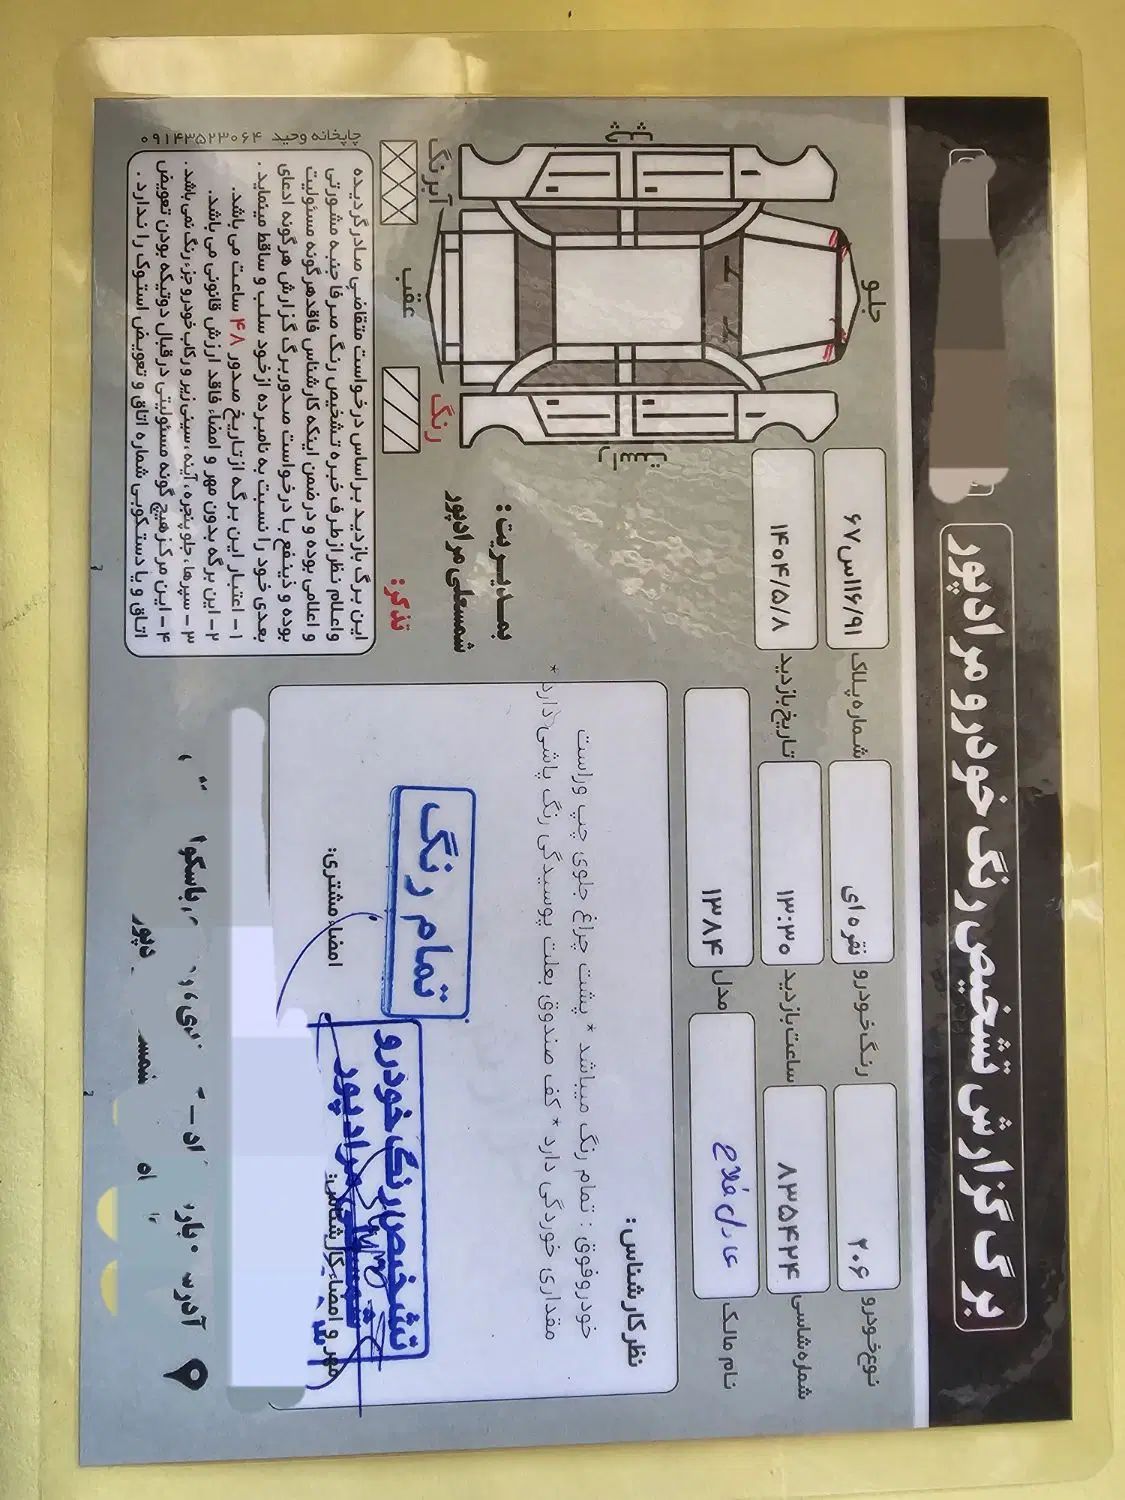 برگ گزارش تشخیص رنگ خودرو مرادپور
نوع خودرو ۲۰۶
رنگ خودرو نقره ای
شماره پلاک ۹۱/۱۱۶س۶۷
شماره شاسی ۸۳۵۴۲۴
ساعت بازدید ۱۳:۳۰
تاریخ بازدید ۱۴۰۴/۵/۸
نام مالک عادل فلاح
مدل ۱۳۸۴
نظر کارشناس:
خودروفوق : تمام رنگ میباشد * پشت چراغ جلوی چپ وراست
مقداری خوردگی دارد * کف صندوق بعلت پوسیدگی رنگ پاشی دارد *
تمام رنگ
تشخیص رنگ خودرو
مرادپور
مهر و امضاء کارشناس:
امضاء مشتری:
چپ
جلو
عقب
راست
آبرنگ
رنگ
بمدیریت:
شمسعلی مرادپور
تذکر:
این برگ بازدید براساس درخواست متقاضی صادر گردیده
واعلام نظر ازطرف خبره تشخیص رنگ صرفا جنبه مشورتی
و اعلامی بوده و درضمن اینکه کارشناس فاقد هرگونه مسئولیت
بوده و ذینفع با درخواست صدور برگ گزارش هرگونه ادعای
بعدی خود را نسبت به نامبرده از خود سلب و ساقط مینماید.
۱- اعتبار این برگه از تاریخ صدور ۴۸ ساعت می باشد.
۲- این برگه بدون مهر و امضاء فاقد ارزش قانونی می باشد.
۳- سپرها، جلو پنجره، آینه، سینی زیر و رکاب خودرو جزء رنگ نمی باشد.
۴- این مرکز هیچ گونه مسئولیتی در قبال دوتیکه بودن تعویض
اتاق و یا دستکوبی شماره اتاق و تعویض استوک را ندارد.
چاپخانه وحید ۰۹۱۴۳۵۲۳۰۶۴
آدرس